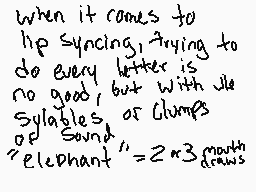 when it comes to
lip syncing, trying to
do every letter is
no good, but with the
sylables or clumps
of sound
"elephant" = 2 or 3 mouth
draws